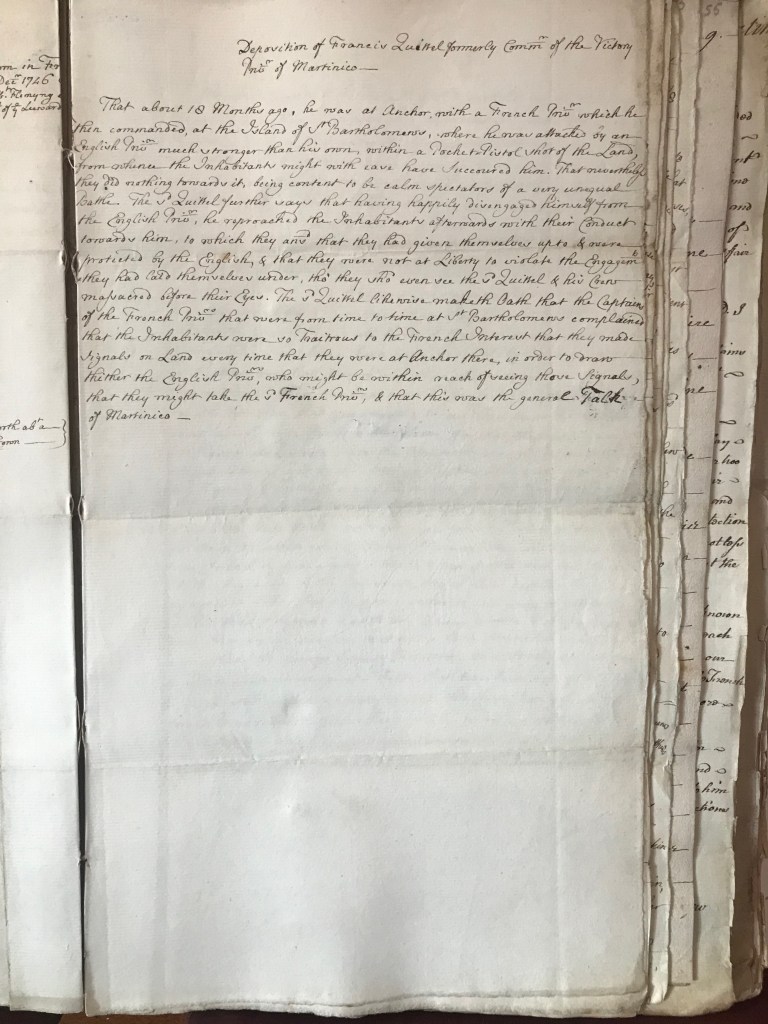 rn in
Decr 1746
Flemyng
of ye Leeward
orth abt a
Crown
Deposition of Francis Quittel formerly Commr of the Victory
Privr of Martinico —
That about 18 Months ago, he was at Anchor, with a French Privr which he
then commanded, at the Island of St Bartholomews, where he was attacked by an
English Privr much stronger than his own, within a Pocket-Pistol shot of the Land,
from whence the Inhabitants might with ease have Succoured him. That nevertheless
they did nothing towards it, being content to be calm spectators of a very unequal
Battle. The sd Quittel further says that having happily disengaged himself from
the English Privr, he reproached the Inhabitants afterwards with their Conduct
towards him, to which they ansd that they had given themselves up to, & were
protected by the English, & that they were not at Liberty to violate the Engagemts
they had laid themselves under, tho' they sho'd even see the sd Quittel & his Crew
massacred before their Eyes. The sd Quittel likewise maketh Oath that the Captains
of the French Privrs that were from time to time at St Bartholomews complained
that the Inhabitants were so Traitrous to the French Interest that they made
Signals on Land every time that they were at Anchor there, in order to draw
thither the English Privrs, who might be within reach of seeing those Signals,
that they might take the sd French Privrs, & that this was the general Talk
of Martinico —
55
9.
of
fair
ne
ice
ne
and
t the
known
each
our
French
ore
nd
him